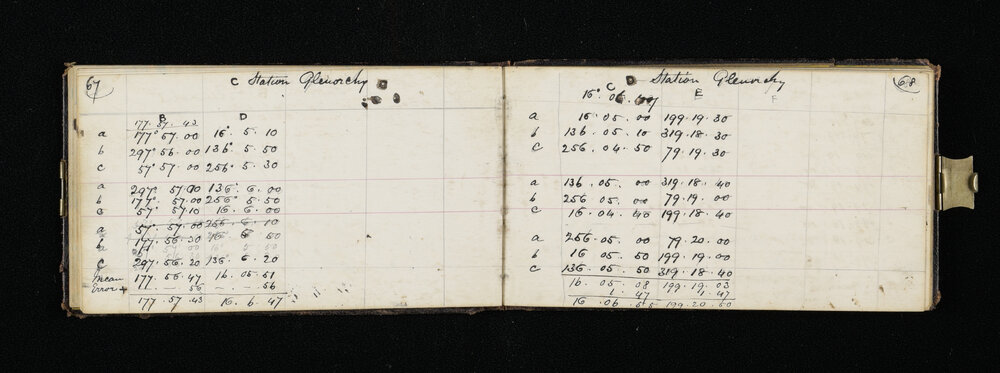 67
C Station Glenorchy D
B D
177.57.43
a 177° 57.00 16° 5.10
b 297° 56.00 136° 5.50
c 57° 57.00 256° 5.30
a 297° 57.00 136° 6.00
b 177° 57.00 256° 5.50
c 57° 57.10 16° 6.00
a 57° 57.00 256.6.10
b 177.56.30 16° 6.50
c 297.56.20 136.6.20
Mean 177.56.47 16.05.51
Error + . — 56 — . — 56
177.57.43 16.6.47
68
D Station Glenorchy
C E F
16°.06.
a 16.05.00 199.19.30
b 136.05.10 319.18.30
c 256.04.50 79.19.30
a 136.05.00 319.18.40
b 256.05.00 79.19.00
c 16.04.40 199.18.40
a 256.05.00 79.20.00
b 16.05.50 199.19.00
c 136.05.50 319.18.40
16.05.08 199.19.03
1.47 1.47
16.06.55 199.20.50